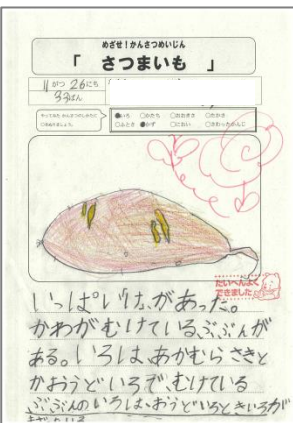 めざせ！かんさつめいじん
「 さつまいも 」
11がつ 26にち
33ばん
●いろ ○かたち ○おおきさ
○ふとさ ●かず ○におい
たいへんよく
できました
いっぱいけ、があった。
かわがむけている、ぶぶんが
ある。いろは、あかむらさきと
かおうどいろで、むけている
ぶぶんのいろは、おうどいろときいろが